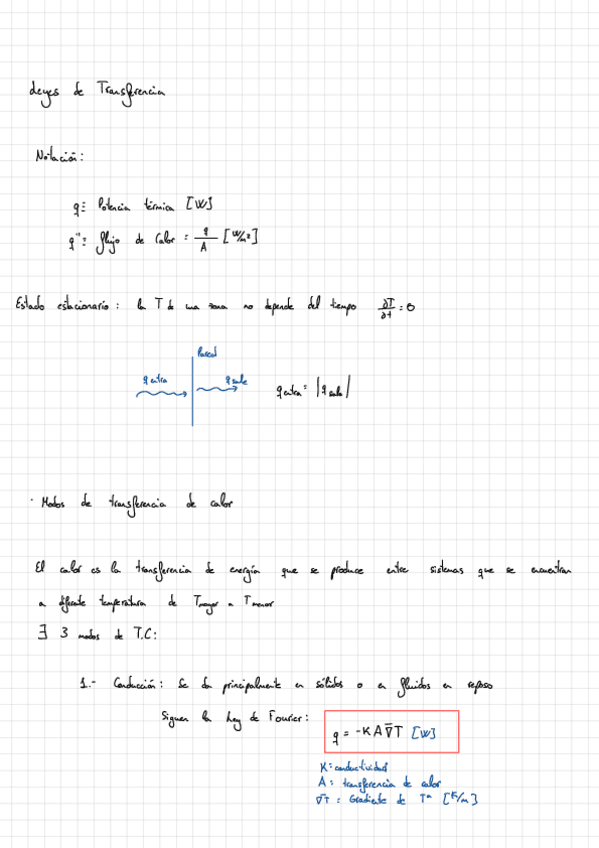 Leyes de Transferencia
Notación:
q: Potencia térmica [W]
q'': flujo de Calor = q/A [W/m²]
Estado estacionario: la T de una zona no depende del tiempo ∂T/∂t = 0
Pared
q entra
q sale
q entra = |q sale|
· Modos de transferencia de calor
El calor es la transferencia de energía que se produce entre sistemas que se encuentran
a diferente temperatura de Tmayor a Tmenor
∃ 3 modos de T.C:
1.- Conducción: Se da principalmente en sólidos o en fluidos en reposo
Siguen la Ley de Fourier:
q = -K A ∇T [W]
K: conductividad
A: transferencia de calor
∇T: Gradiente de Tª [K/m]